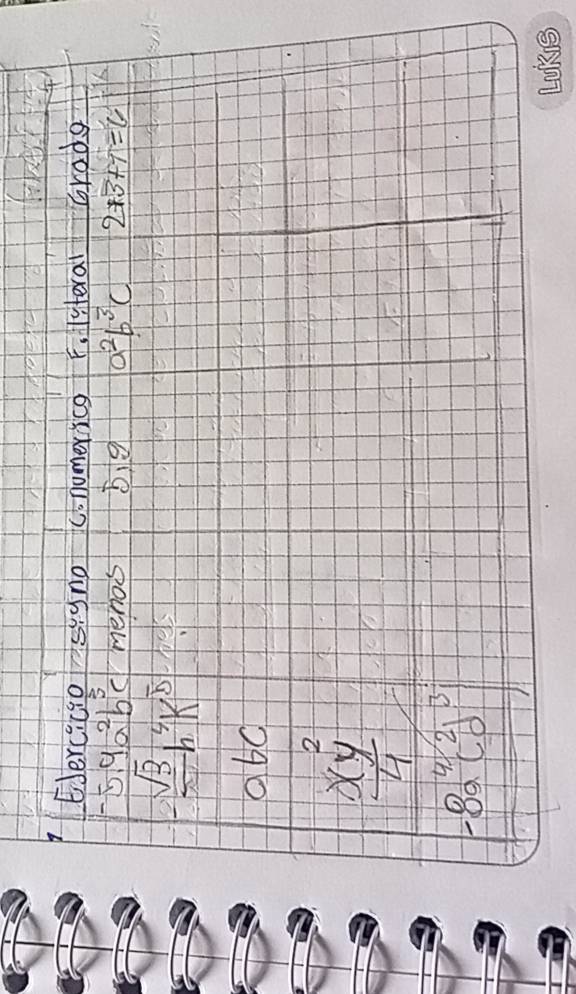 1 Ejercicio signo C. numerico F. literal Grado
-5,9a²b³c menos 5,9 a²b³c 2+3+1=6
-√3 h⁴k⁵
abc
xy²
4
-8a⁴c²d³
LUKIS